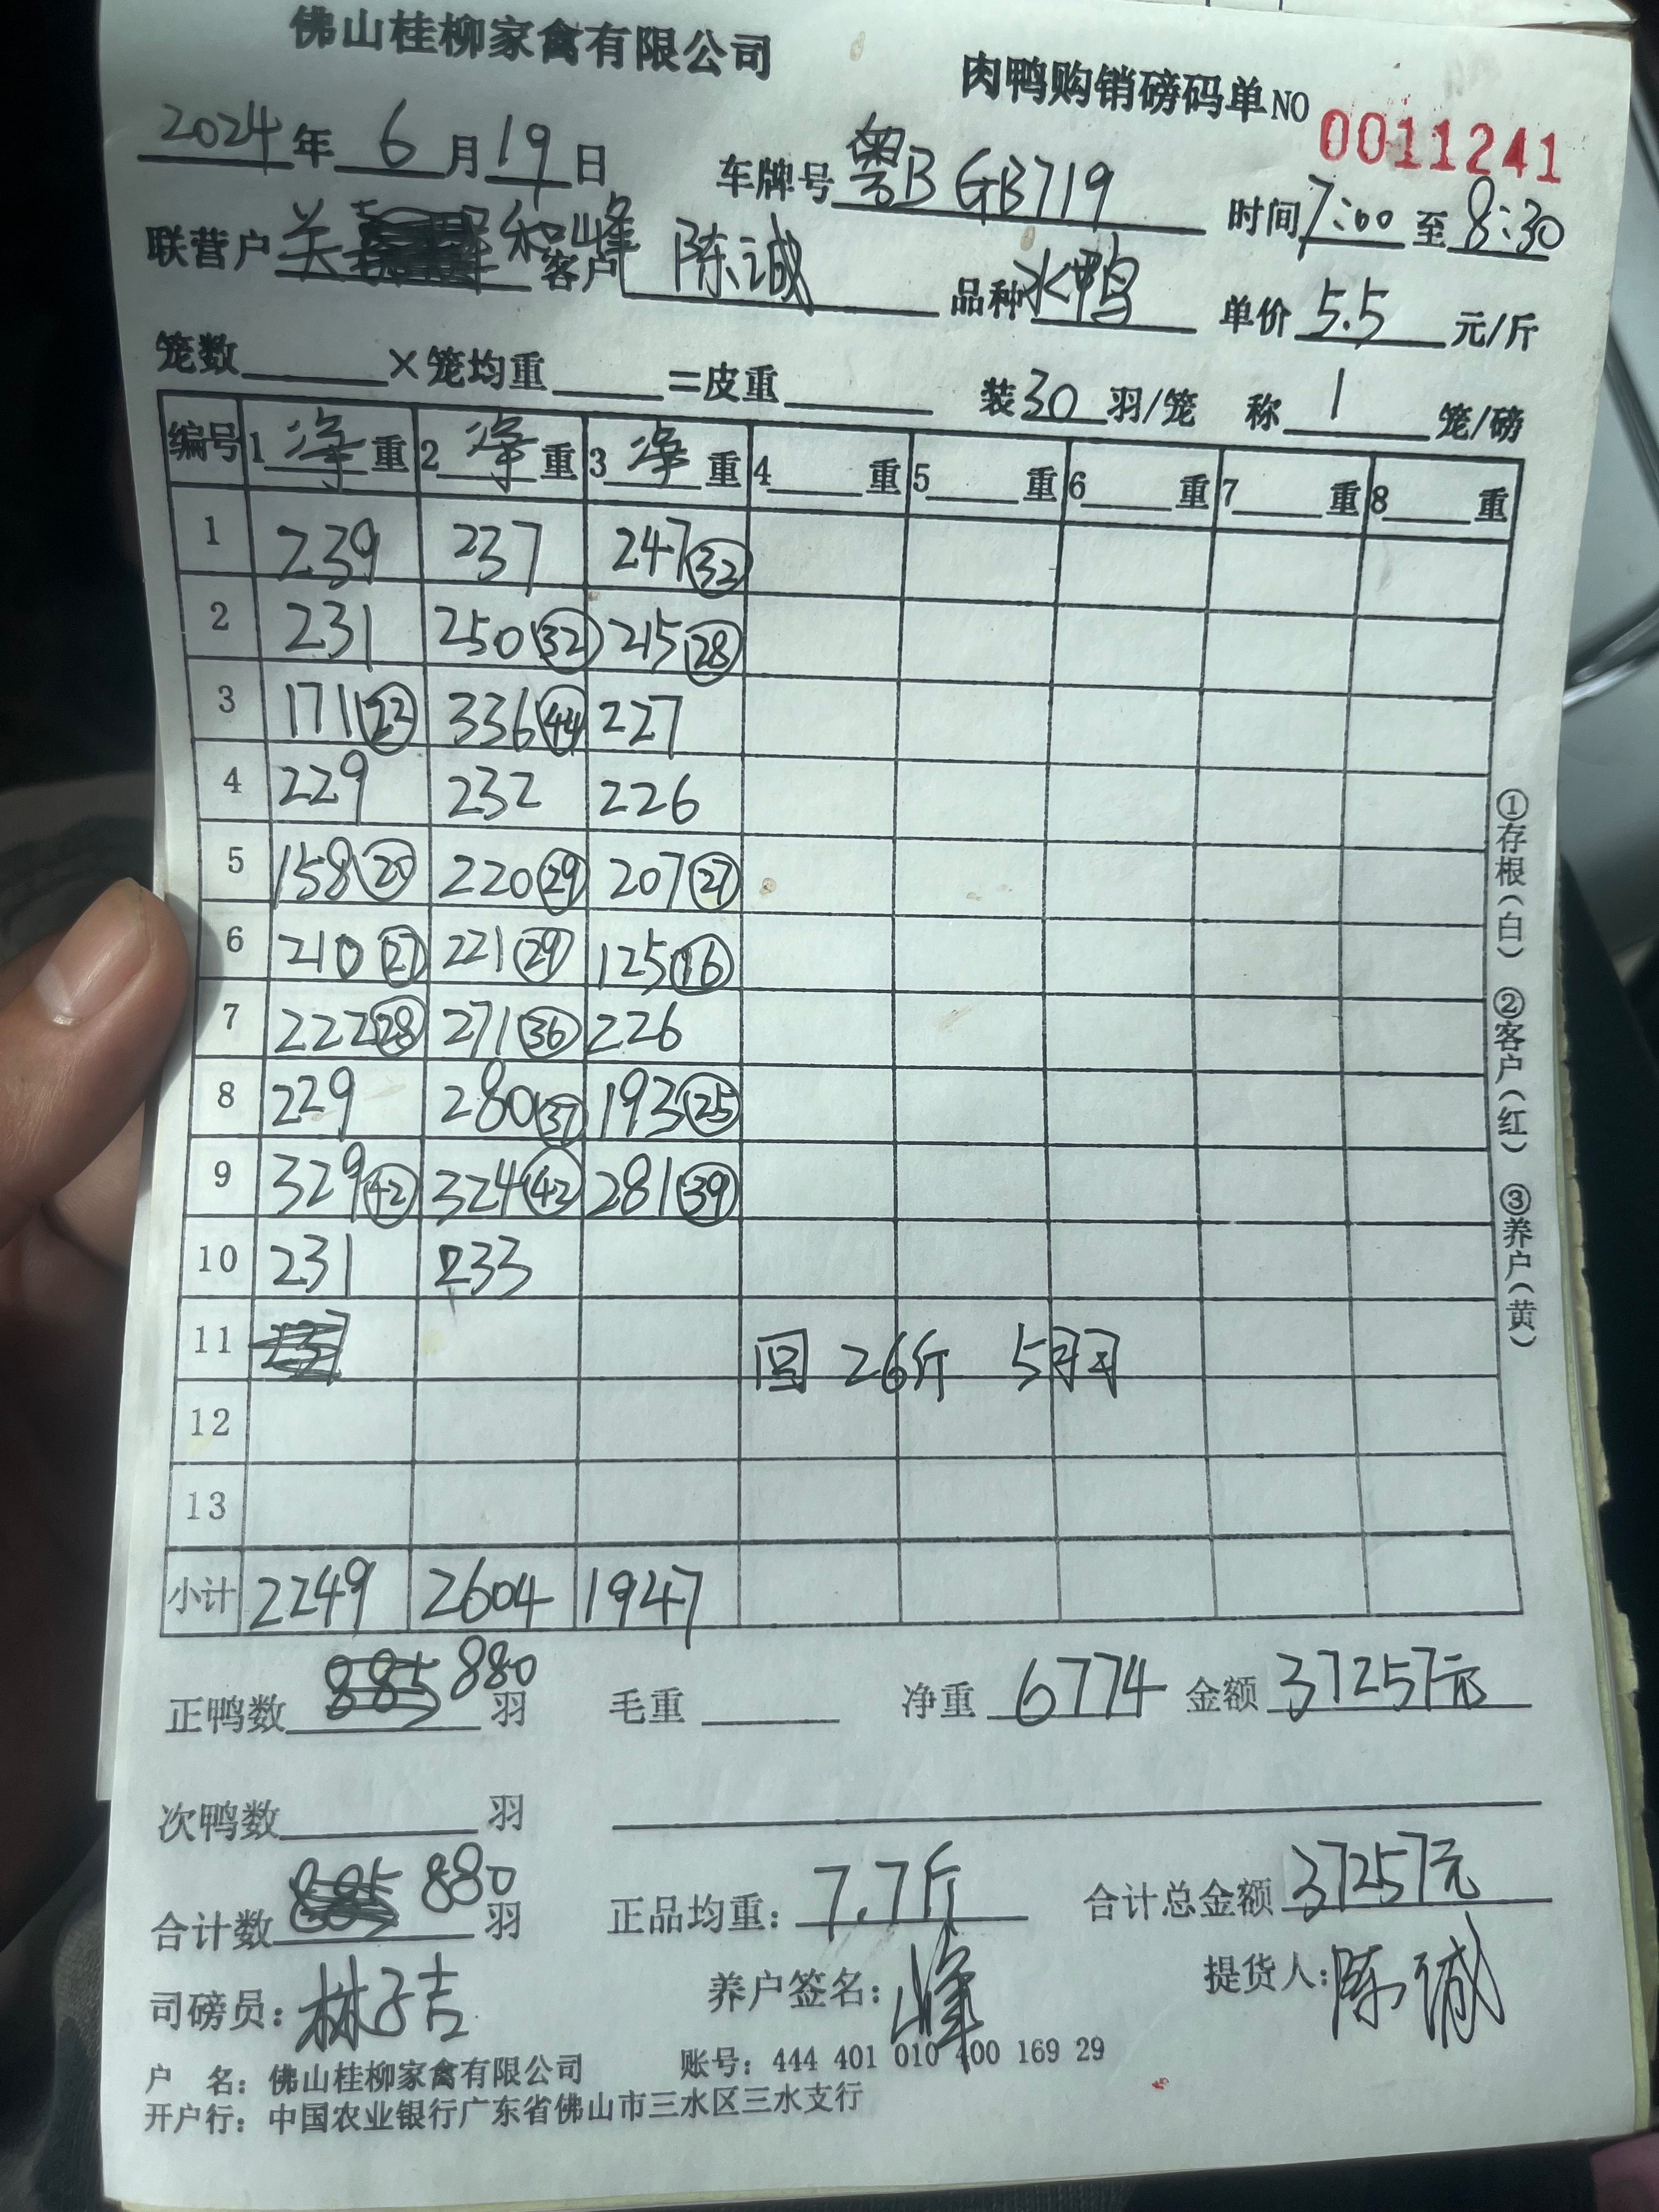 佛山桂柳家禽有限公司
肉鸭购销磅码单NO 0011241
2024年6月19日 车牌号 粤B GB719 时间 7:00 至 8:30
联营户 关和峰 客户 陈诚 品种 水鸭 单价 5.5 元/斤
笼数 ×笼均重 =皮重 装30羽/笼 称1笼/磅
编号 1净重 2净重 3净重 4重 5重 6重 7重 8重
1 239 237 247 32
2 231 250 32 215 28
3 171 22 336 44 227
4 229 232 226
5 158 20 220 29 207 27
6 210 27 221 29 125 16
7 222 28 271 36 226
8 229 280 37 193 25
9 329 42 324 42 281 39
10 231 233
11 回 26斤 5羽
12
13
小计 2249 2604 1947
正鸭数 880 羽 毛重 净重 6774 金额 37257元
次鸭数 羽
合计数 880 羽 正品均重: 7.7斤 合计总金额 37257元
司磅员: 林子吉 养户签名: 峰 提货人: 陈诚
户 名: 佛山桂柳家禽有限公司 账号: 444 401 010 400 169 29
开户行: 中国农业银行广东省佛山市三水区三水支行
①存根(白) ②客户(红) ③养户(黄)